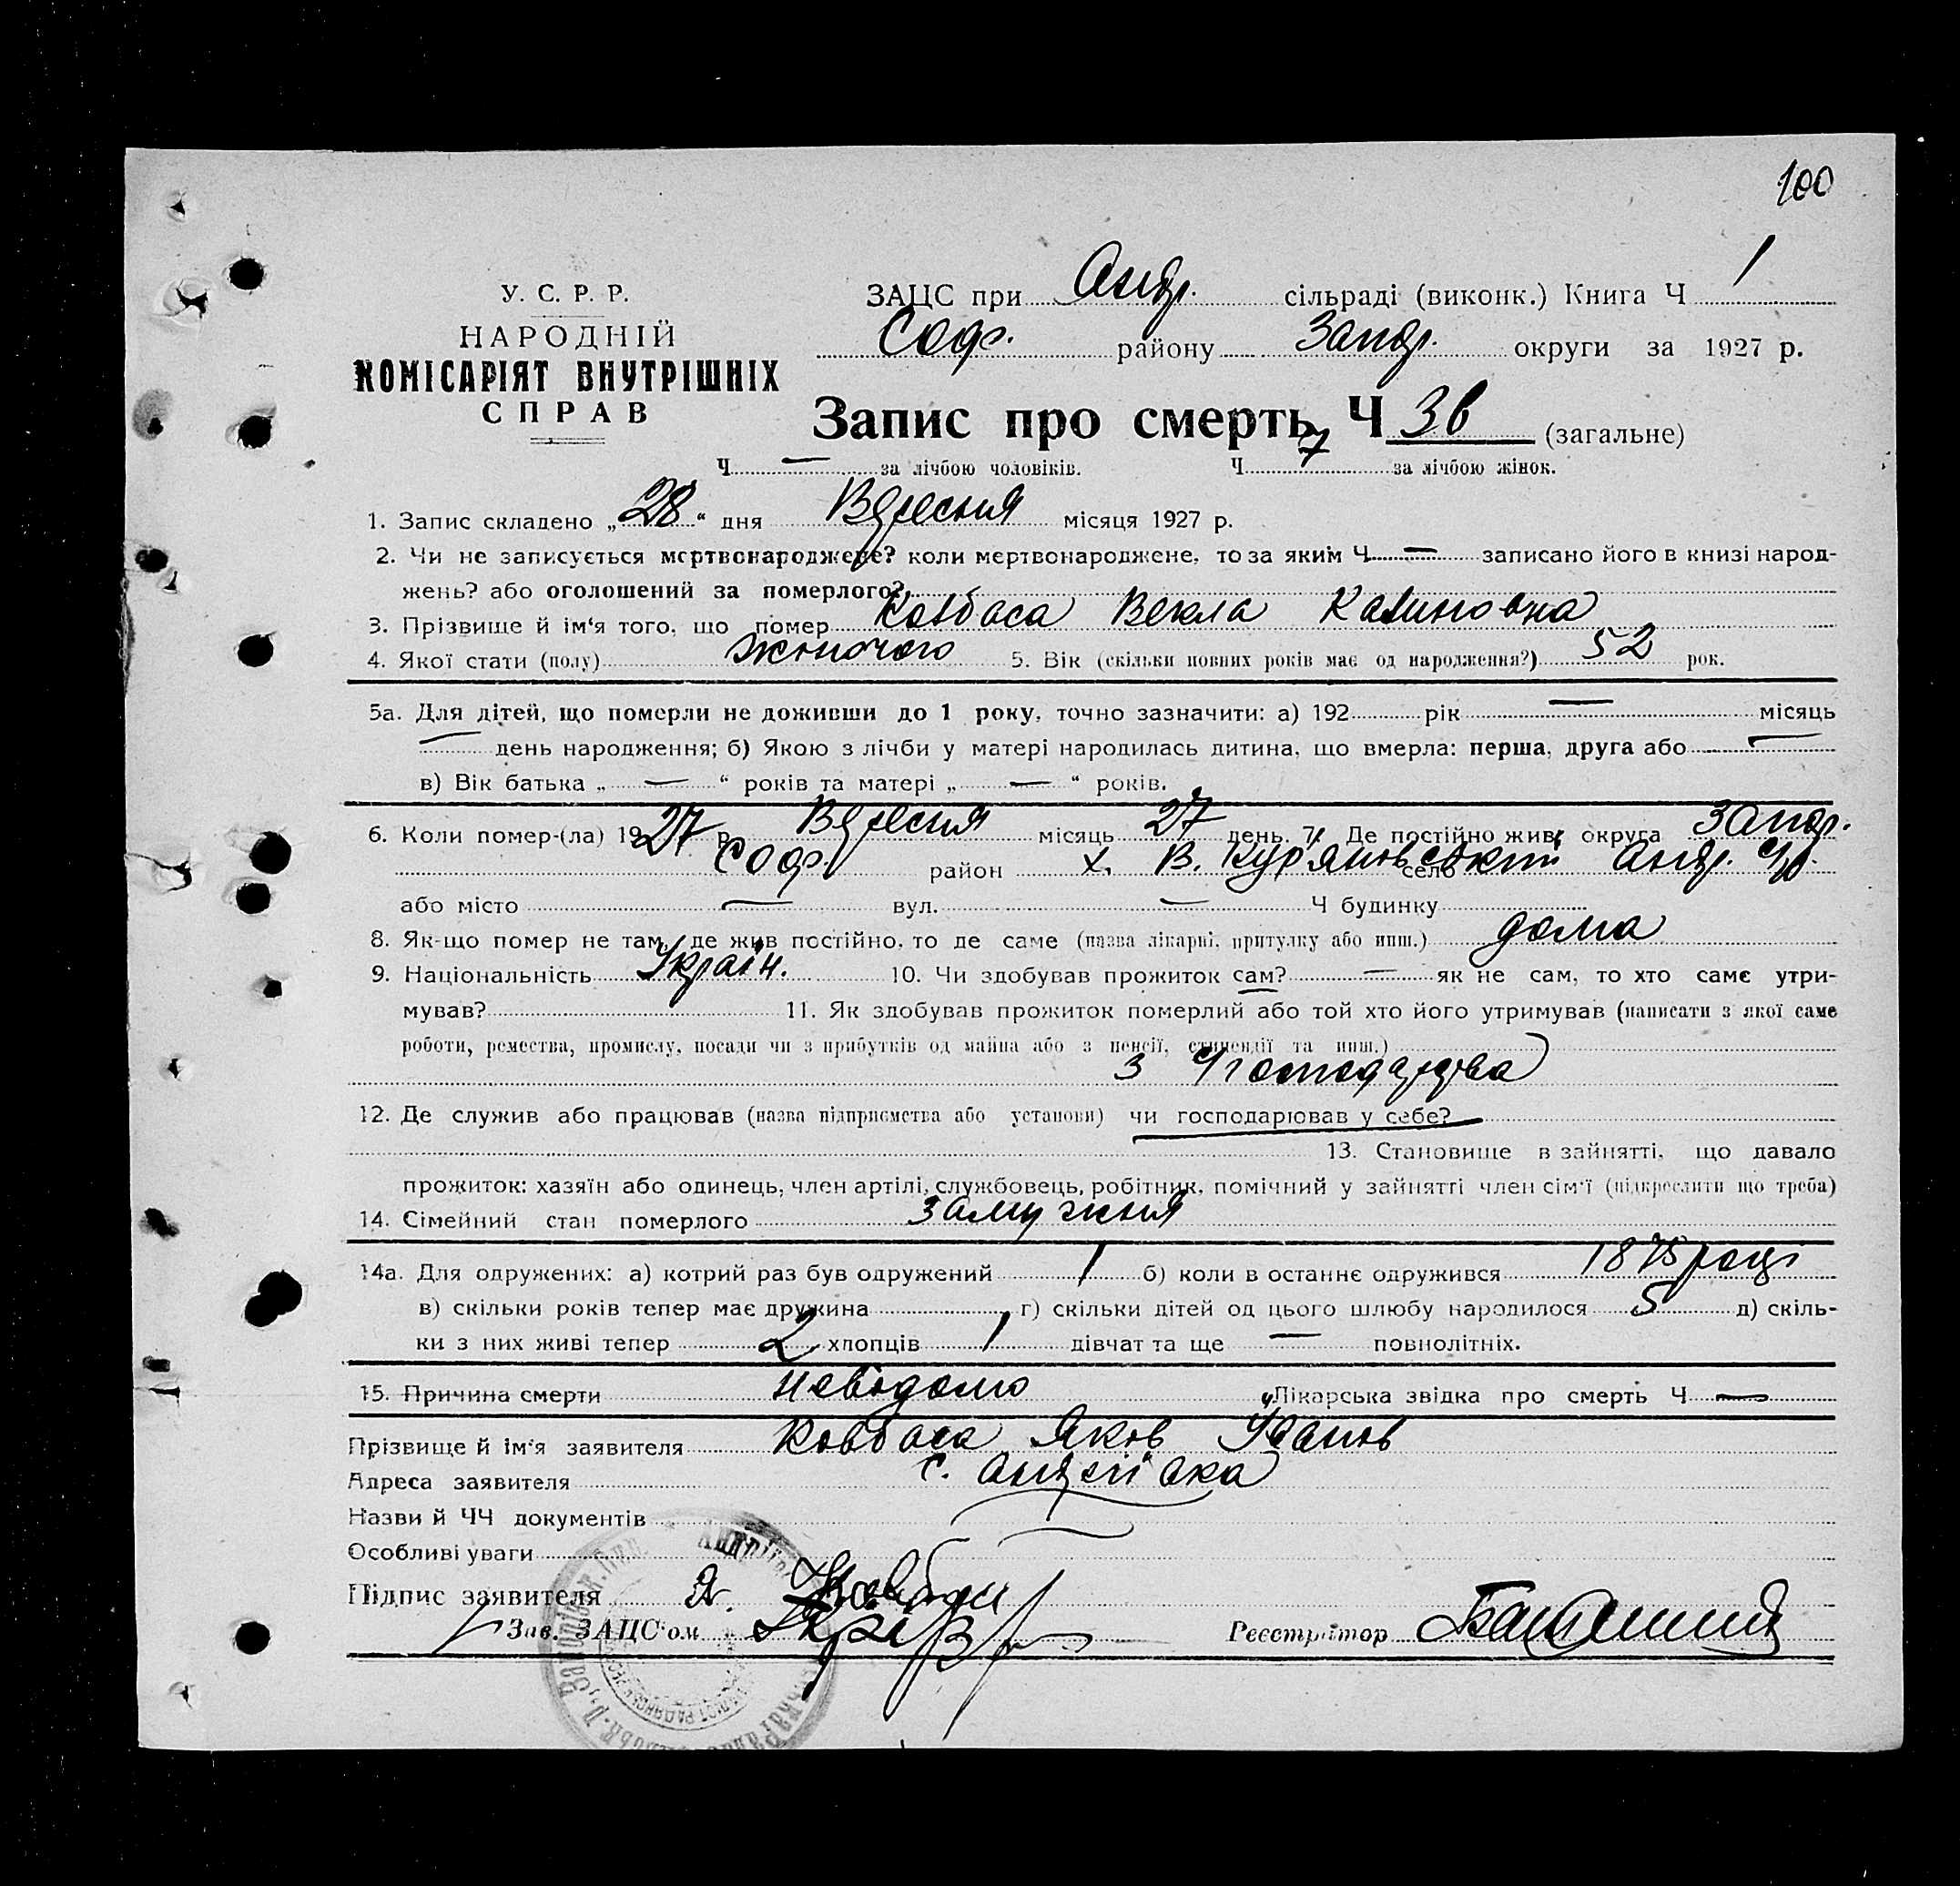 100
У. С. Р. Р.
НАРОДНІЙ
КОМІСАРІЯТ ВНУТРІШНІХ
СПРАВ
ЗАЦС при Андр. сільраді (виконк.) Книга Ч 1
Соф. району Запор. округи за 1927 р.
Запис про смерть Ч 36 (загальне)
Ч — за лічбою чоловіків. Ч 7 за лічбою жінок.
1. Запис складено „28“ дня Вересня місяця 1927 р.
2. Чи не записується мертвонароджене? коли мертвонароджене, то за яким Ч — записано його в книзі народ-
жень? або оголошений за померлого?
3. Прізвище й ім‘я того, що помер Ковбаса Векла Калиновна
4. Якої стати (полу) жіночого 5. Вік (скільки повних років має од народження?) 52 рок.
5а. Для дітей, що померли не доживши до 1 року, точно зазначити: а) 192 рік — місяць
— день народження; б) Якою з лічби у матері народилась дитина, що вмерла: перша, друга або —
в) Вік батька „ — “ років та матері „ — “ років.
6. Коли помер-(ла) 1927 р. Вересня місяць 27 день. 7. Де постійно жив: округа Запор.
Соф. район х. В. Кур'яновський село Андр. с/р.
або місто — вул. — Ч будинку
8. Як-що помер не там, де жив постійно, то де саме (назва лікарні, притулку або инш.) дома
9. Національність Україн. 10. Чи здобував прожиток сам? — як не сам, то хто саме утри-
мував? 11. Як здобував прожиток померлий або той хто його утримував (написати з якої саме
роботи, ремества, промислу, посади чи з прибутків од майна або з пенсії, стипендії та инш.)
з Господарства
12. Де служив або працював (назва підприємства або установи) чи господарював у себе?
13. Становище в зайнятті, що давало
прожиток: хазяїн або одинець, член артілі, службовець, робітник, помічний у зайнятті член сім'ї (підкреслити що треба)
14. Сімейний стан померлого замужня
14а. Для одружених: а) котрий раз був одружений 1 б) коли в останнє одружився 1875 році
в) скільки років тепер має дружина г) скільки дітей од цього шлюбу народилося 5 д) скіль-
ки з них живі тепер 2 хлопців 1 дівчат та ще — повнолітніх.
15. Причина смерти невідомо Лікарська звідка про смерть Ч —
Прізвище й ім'я заявителя Ковбаса Яков Іванов
Адреса заявителя с. Андріївка
Назви й ЧЧ документів
Особливі уваги
Підпис заявителя Я. Ковбаса
Зав. ЗАЦС'ом
Реєстратор